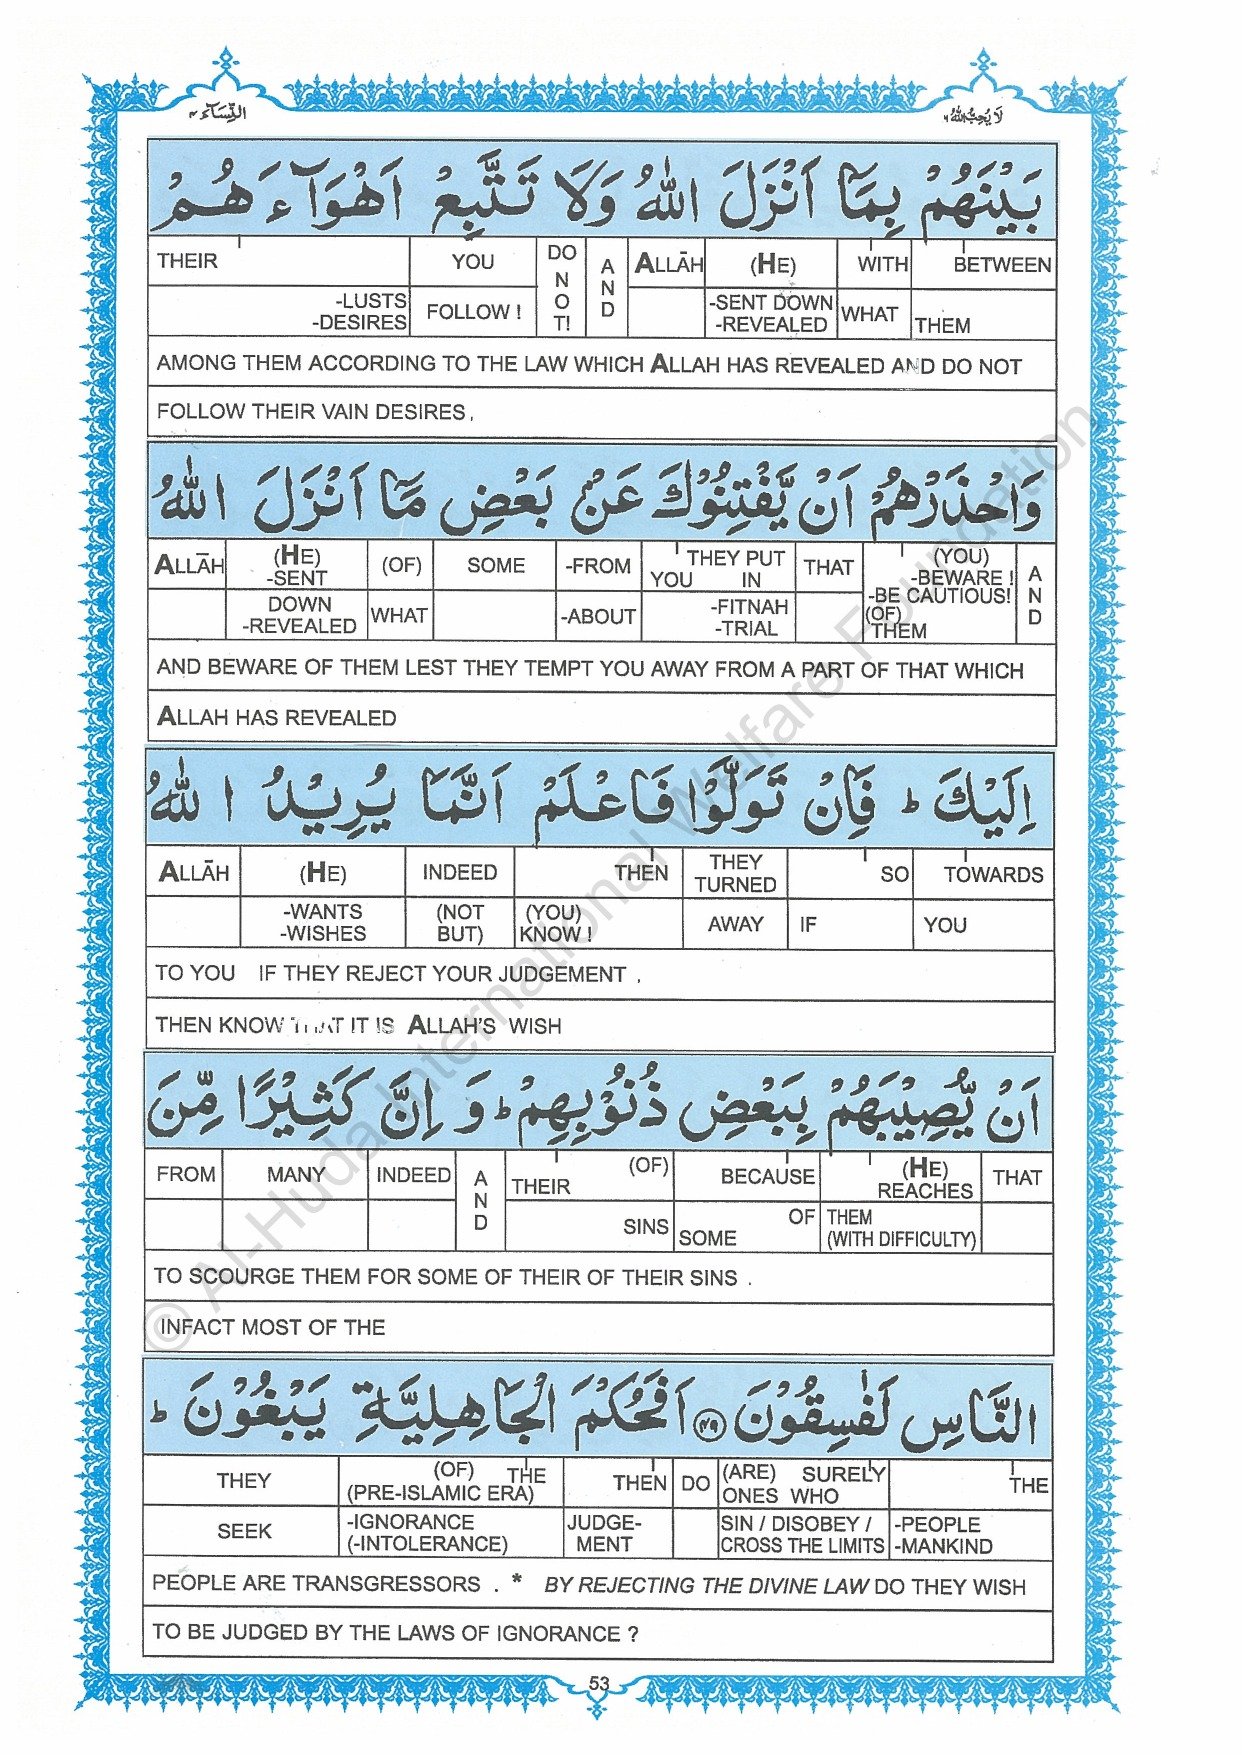 النِّسَاء ٤
لَا يُحِبُّ اللهُ ٦
بَيْنَهُمْ بِمَآ اَنْزَلَ اللهُ وَلَا تَتَّبِعْ اَهْوَآءَهُمْ
THEIR YOU DO NOT! AND ALLĀH (HE) WITH BETWEEN
-LUSTS -DESIRES FOLLOW ! -SENT DOWN -REVEALED WHAT THEM
AMONG THEM ACCORDING TO THE LAW WHICH ALLAH HAS REVEALED AND DO NOT
FOLLOW THEIR VAIN DESIRES,
وَاحْذَرْهُمْ اَنْ يَّفْتِنُوْكَ عَنْۢ بَعْضِ مَآ اَنْزَلَ اللهُ
ALLĀH (HE) -SENT (OF) SOME -FROM THEY PUT YOU IN THAT (YOU) -BEWARE ! -BE CAUTIOUS! AND
DOWN -REVEALED WHAT -ABOUT -FITNAH -TRIAL (OF) THEM
AND BEWARE OF THEM LEST THEY TEMPT YOU AWAY FROM A PART OF THAT WHICH
ALLAH HAS REVEALED
اِلَيْكَ ؕ فَاِنْ تَوَلَّوْا فَاعْلَمْ اَنَّمَا يُرِيْدُ اللهُ
ALLĀH (HE) INDEED THEN THEY TURNED SO TOWARDS
-WANTS -WISHES (NOT BUT) (YOU) KNOW ! AWAY IF YOU
TO YOU IF THEY REJECT YOUR JUDGEMENT ,
THEN KNOW THAT IT IS ALLAH'S WISH
اَنْ يُّصِيْبَهُمْ بِبَعْضِ ذُنُوْبِهِمْ ؕ وَ اِنَّ كَثِيْرًا مِّنَ
FROM MANY INDEED AND THEIR (OF) BECAUSE (HE) REACHES THAT
SINS OF SOME THEM (WITH DIFFICULTY)
TO SCOURGE THEM FOR SOME OF THEIR OF THEIR SINS .
INFACT MOST OF THE
النَّاسِ لَفٰسِقُوْنَ ۝٤٩ اَفَحُكْمَ الْجَاهِلِيَّةِ يَبْغُوْنَ ؕ
THEY (OF) THE (PRE-ISLAMIC ERA) THEN DO (ARE) SURELY ONES WHO THE
SEEK -IGNORANCE (-INTOLERANCE) JUDGE- MENT SIN / DISOBEY / CROSS THE LIMITS -PEOPLE -MANKIND
PEOPLE ARE TRANSGRESSORS . * BY REJECTING THE DIVINE LAW DO THEY WISH
TO BE JUDGED BY THE LAWS OF IGNORANCE ?
53
© Al-Huda International Welfare Foundation